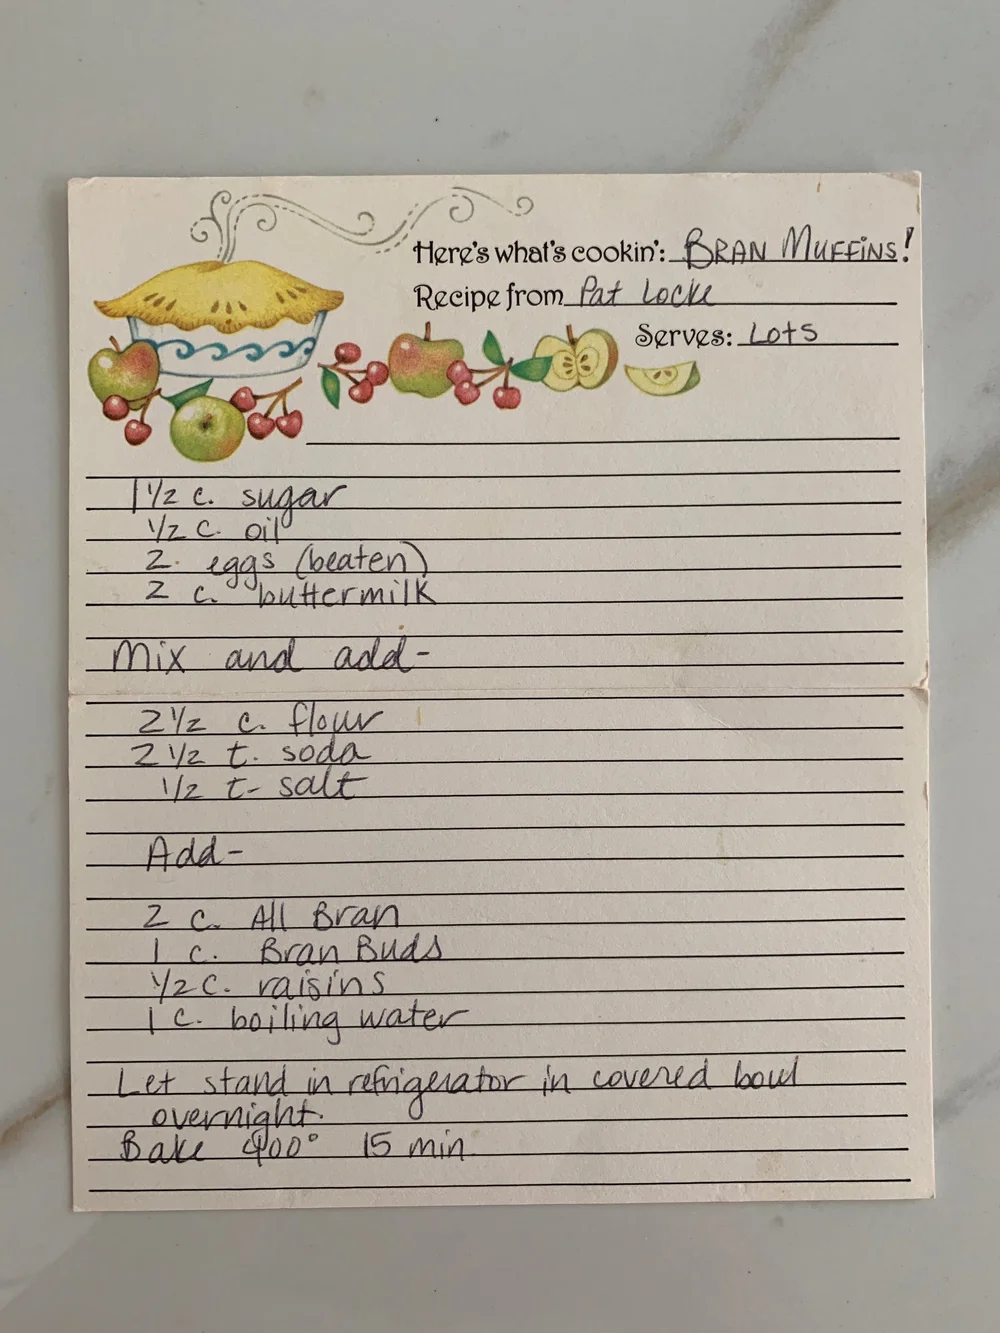 Here's what's cookin': BRAN MUFFINS!
Recipe from Pat Locke
Serves: Lots
1 1/2 c. sugar
1/2 c. oil
2. eggs (beaten)
2 c. buttermilk
Mix and add-
2 1/2 c. flour
2 1/2 t. soda
1/2 t- salt
Add-
2 c. All Bran
1 c. Bran Buds
1/2 c. raisins
1 c. boiling water
Let stand in refrigerator in covered bowl
overnight.
Bake 400° 15 min.